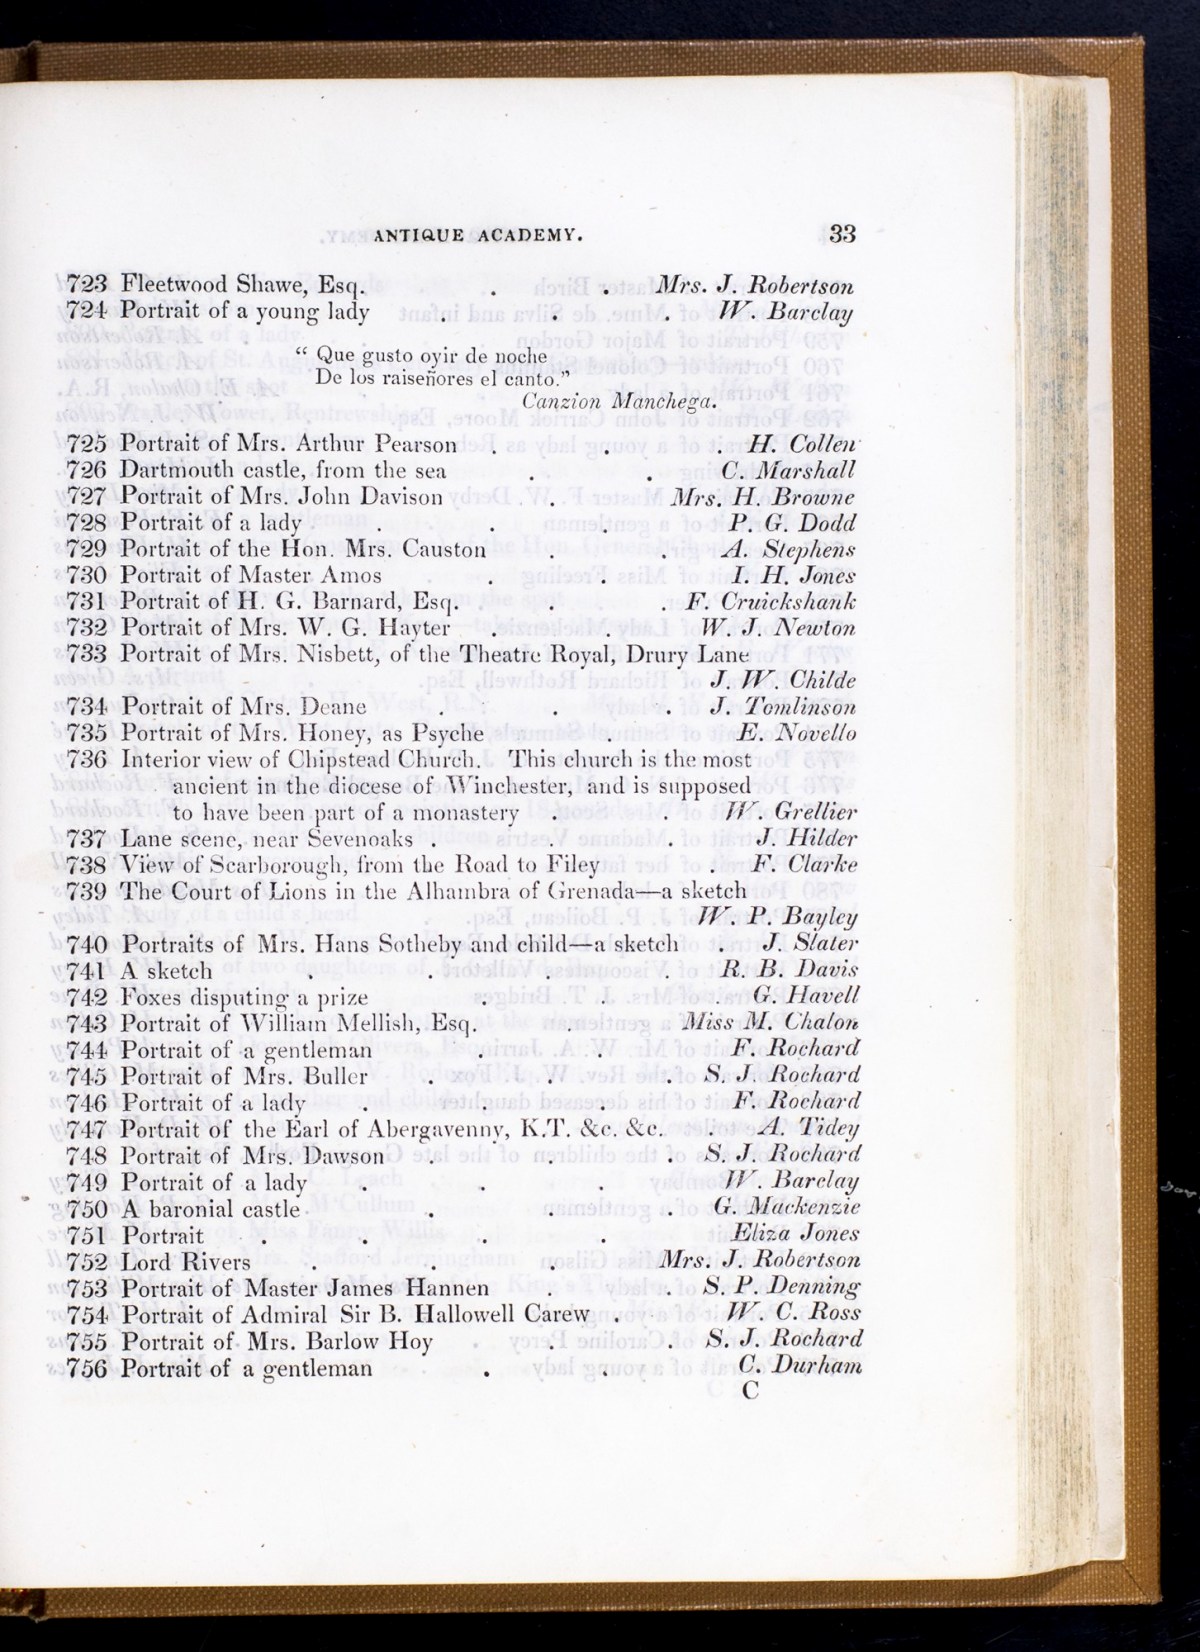 ANTIQUE ACADEMY. 33
723 Fleetwood Shawe, Esq. . . Mrs. J. Robertson
724 Portrait of a young lady . . . W. Barclay
“ Que gusto oyir de noche
De los raiseñores el canto.”
Canzion Manchega.
725 Portrait of Mrs. Arthur Pearson . . . H. Collen
726 Dartmouth castle, from the sea . . C. Marshall
727 Portrait of Mrs. John Davison . . Mrs. H. Browne
728 Portrait of a lady . . . . P. G. Dodd
729 Portrait of the Hon. Mrs. Causton . . A. Stephens
730 Portrait of Master Amos . . . I. H. Jones
731 Portrait of H. G. Barnard, Esq. . . . F. Cruickshank
732 Portrait of Mrs. W. G. Hayter . . W. J. Newton
733 Portrait of Mrs. Nisbett, of the Theatre Royal, Drury Lane
J. W. Childe
734 Portrait of Mrs. Deane . . . J. Tomlinson
735 Portrait of Mrs. Honey, as Psyche . . E. Novello
736 Interior view of Chipstead Church. This church is the most
ancient in the diocese of Winchester, and is supposed
to have been part of a monastery . . W. Grellier
737 Lane scene, near Sevenoaks . . . J. Hilder
738 View of Scarborough, from the Road to Filey . F. Clarke
739 The Court of Lions in the Alhambra of Grenada—a sketch
W. P. Bayley
740 Portraits of Mrs. Hans Sotheby and child—a sketch . J. Slater
741 A sketch . . . . R. B. Davis
742 Foxes disputing a prize . . . G. Havell
743 Portrait of William Mellish, Esq. . . Miss M. Chalon
744 Portrait of a gentleman . . . F. Rochard
745 Portrait of Mrs. Buller . . . S. J. Rochard
746 Portrait of a lady . . . . F. Rochard
747 Portrait of the Earl of Abergavenny, K.T. &c. &c. . A. Tidey
748 Portrait of Mrs. Dawson . . . S. J. Rochard
749 Portrait of a lady . . . . W. Barclay
750 A baronial castle . . . . G. Mackenzie
751 Portrait . . . . Eliza Jones
752 Lord Rivers . . . Mrs. J. Robertson
753 Portrait of Master James Hannen . . S. P. Denning
754 Portrait of Admiral Sir B. Hallowell Carew . . W. C. Ross
755 Portrait of Mrs. Barlow Hoy . . . S. J. Rochard
756 Portrait of a gentleman . . . C. Durham
C